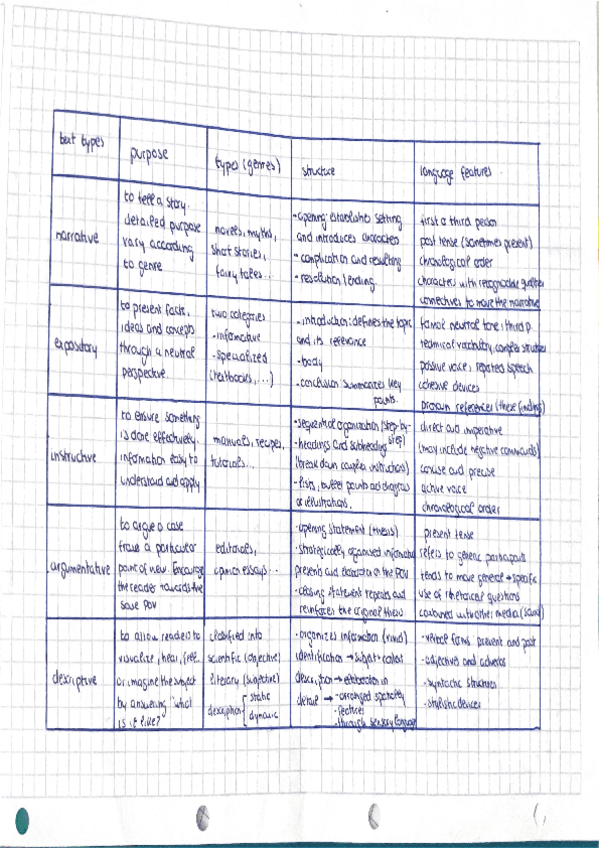 text types
purpose
types (genres)
structure
language features
narrative
to tell a story.
detailed purpose
vary according
to genre
novels, myths,
short stories,
fairy tales...
-opening: establishes setting
and introduces characters
-complication and resulting
-resolution/ending.
first or third person
past tense (sometimes present)
chronological order
characters with recognisable qualities
connectives to move the narrative
expository
to present facts,
ideas and concepts
through a neutral
perspective.
two categories
-informative
-specialized
(textbooks,...)
-introduction: defines the topic
and its relevance
-body
-conclusion: summarizes key
points.
formal neutral tone: third p.
technical vocabulary, complex structures
passive voice, reported speech
cohesive devices
pronoun references (these findings)
instructive
to ensure something
is done effectively.
information easy to
understand and apply
manuals, recipes,
tutorials...
-sequential organization (step-by-
step)
-headings and subheadings
(break down complex instructions)
-lists, bullet points and diagrams
or illustrations.
direct and imperative
(may include negative commands)
concise and precise
active voice
chronological order
argumentative
to argue a case
from a particular
point of view. Encourage
the reader towards the
same POV
editorials,
opinion essays...
-opening statement (thesis)
-strategically organised information
presents and elaboration of the POV
-closing statement repeats and
reinforces the original thesis
present tense
refers to generic participants
tends to move general → specific
use of rhetorical questions
combined with other media (sound)
descriptive
to allow readers to
visualize, hear, feel
or imagine the subject
by answering "what
is it like?"
classified into
scientific (objective)
literary (subjective)
description
static
dynamic
-organizes information (vivid)
identification → subject + context
description → elaboration in
detail → -arranged spatially
-features
-through sensory language
-verbal forms present and past
-adjectives and adverbs
-syntactic structures
-stylistic devices